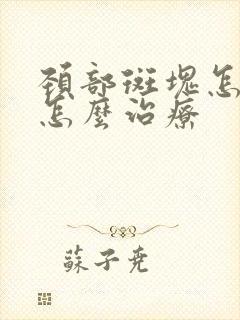 頸部斑塊怎
怎麼治療
蘇子尧